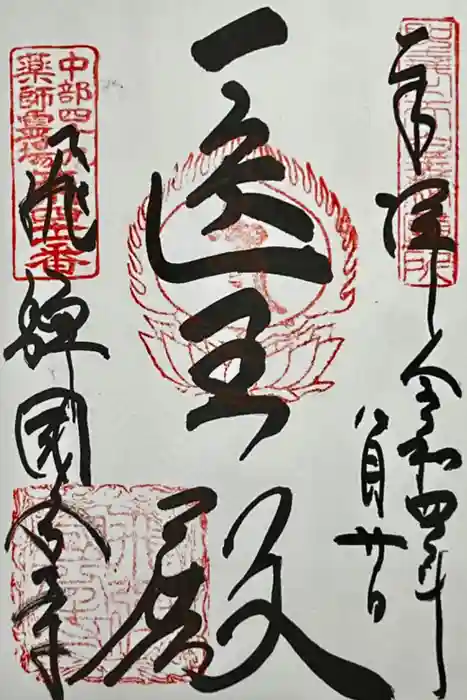 奉拝 令和四年
八月廿日
医王殿
飛騨國分寺
中部四十九
薬師霊場